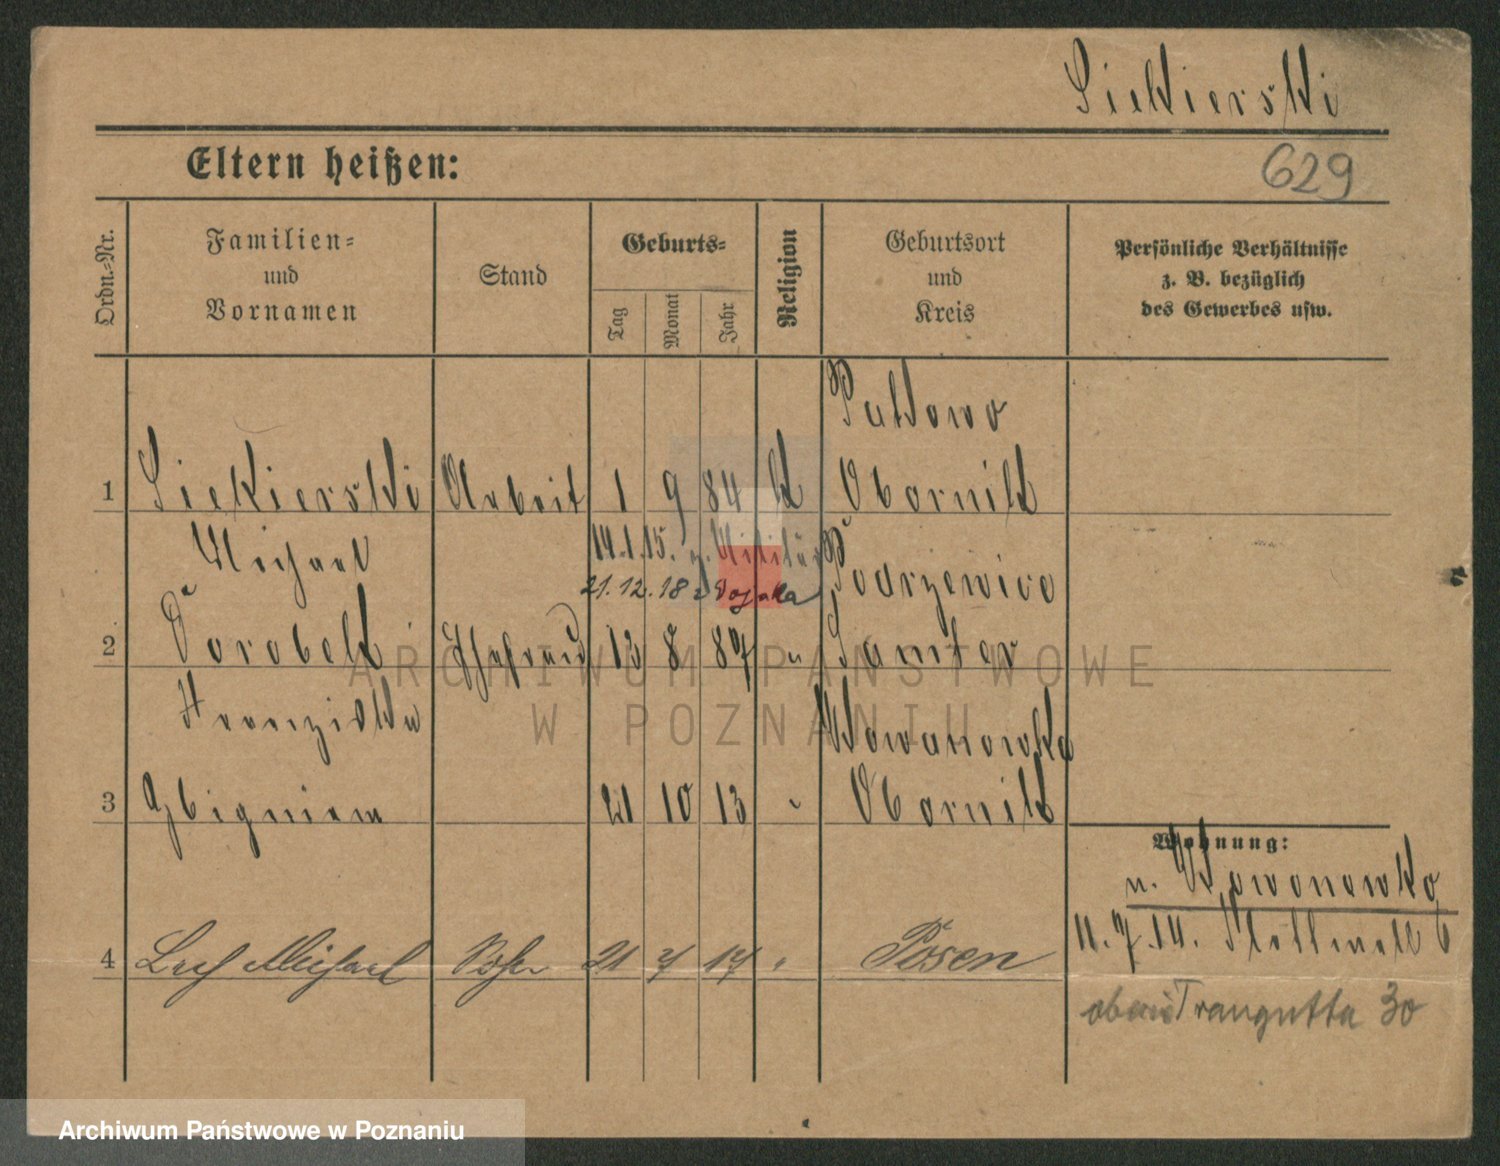 Siekierski
Eltern heißen:
629
Ordn.-Nr.
Familien-
und
Vornamen
Stand
Geburts-
Tag
Monat
Jahr
Religion
Geburtsort
und
Kreis
Persönliche Verhältnisse
z. B. bezüglich
des Gewerbes usw.
1 Siekierski Arbeit 1 9 84 k Obornik
Michael
14.1.15. z. Militär
21.12.18 z Wojska
2 Dorobek Ehefrau 13 8 87 "
Samter
Franziska
3 Zbigniew 21 10 13 " Obornik
Wohnung:
n. Wowanowko
11.7.14.
4 Lech Michael Sohn 21 7 17 " Posen
Traugutta 30
ARCHIWUM PAŃSTWOWE
W POZNANIU
Archiwum Państwowe w Poznaniu